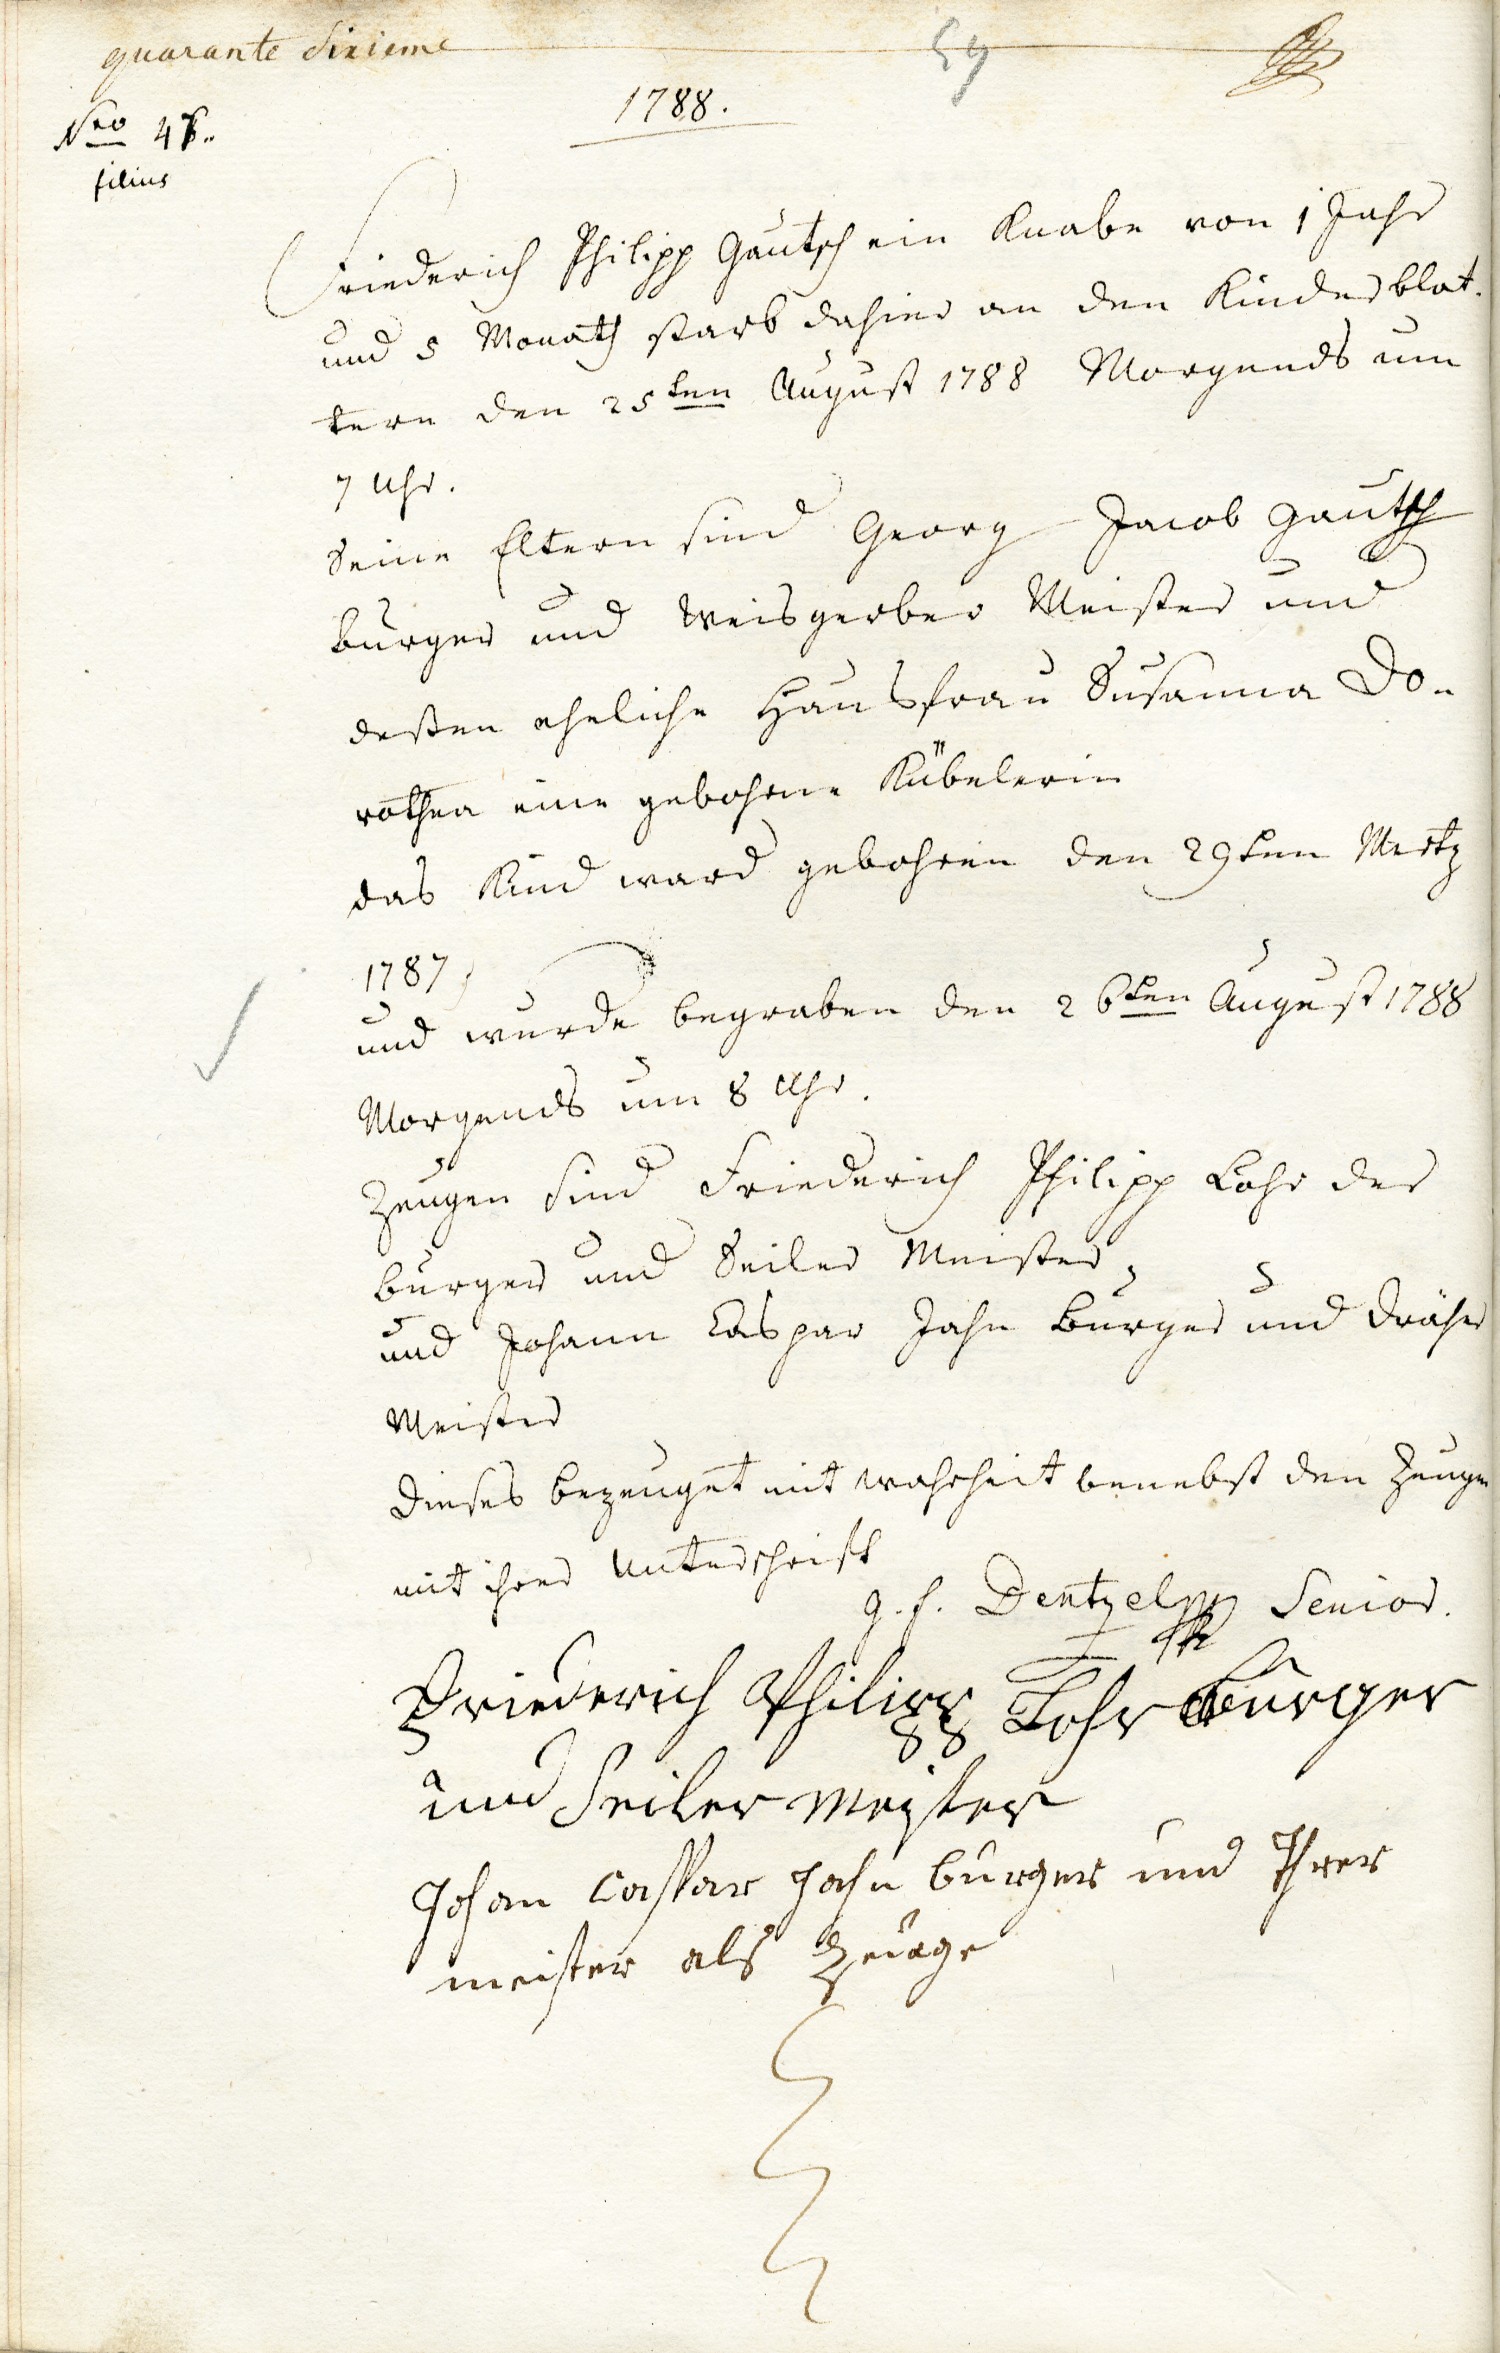 quarante Sixieme
59
1788.
Nro 46.
filius
Friederich Philipp Gautsch ein Knabe von 1 Jahr
und 5 Monath starb dahier an den Kinderblat-
tern den 25ten August 1788 Morgends um
7 Uhr.
Seine Eltern sind Georg Jacob Gautsch
burger und Weisgerber Meister und
deßen eheliche Hausfrau Susanna Do-
rothea eine gebohrne Kübelerin
das Kind ward gebohren den 29ten Mertz
1787,
und wurde begraben den 26ten August 1788
Morgends um 8 Uhr.
Zeugen sind Friederich Philipp Lohr der
burger und Seiler Meister,
und Johann Caspar Jahn burger und Dräher
Meister
Dieses bezeuget mit wahrheit benebst den Zeugen
mit ihrer Unterschrift
G. F. Dentzel Senior.
Friederich Philipp Lohr Burger
und Seiler Meister
Johan Caspar Jahn burger und
meister als Zeuge